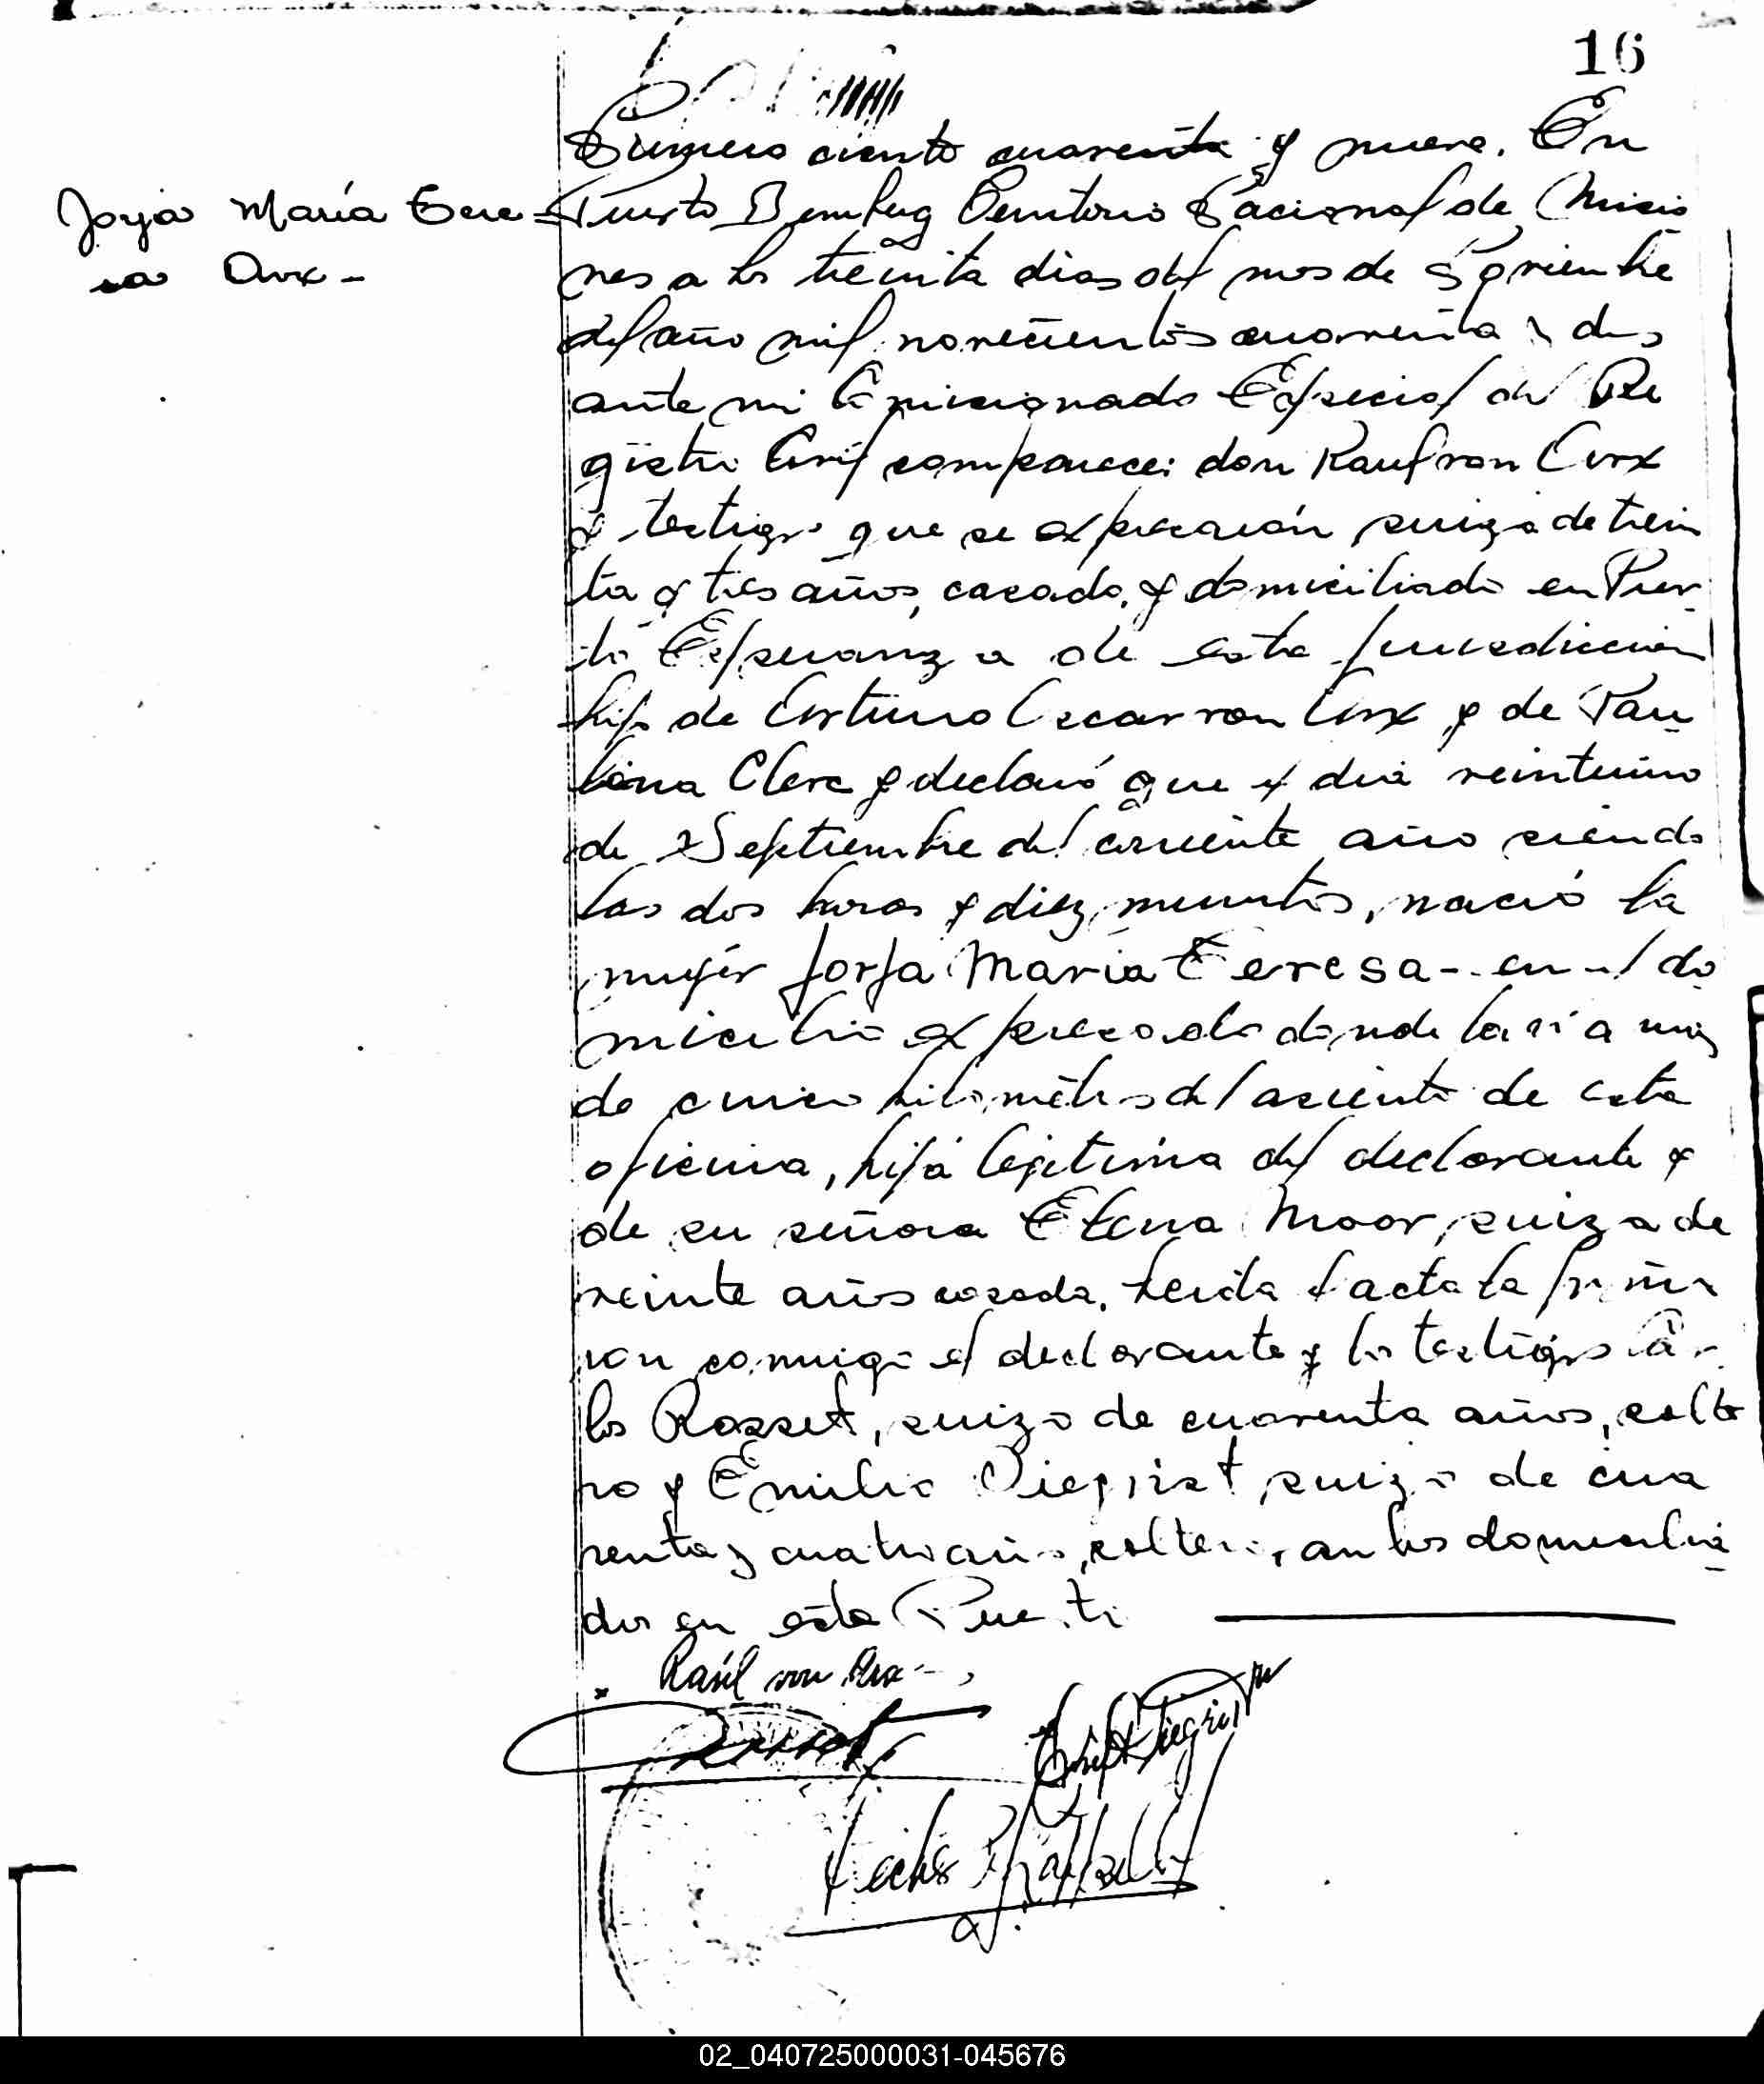 16
Número ciento cuarenta y nueve. En
Jorja María Tere=
sa Arx -
Puerto Bemberg Territorio Nacional de Misio
nes a los treinta dias del mes de Noviembre
del año mil novecientos cuarenta y dos
ante mi Comisionado Especial del Re
gistro Civil comparece: don Raul von Arx
y testigos que se expresarán, suizo de trein
ta y tres años, casado, y domiciliado en Puer
to Esperanza de esta jurisdiccion
hijo de Arturo Oscar von Arx y de Pau
lina Clerc y declaró que el dia veintiuno
de Septiembre del corriente año siendo
las dos horas y diez minutos, nació la
mujér Jorja María Teresa - en el do
micilio expresado donde la ví a mas
de cinco kilometros del asiento de esta
oficina, hija lejitima del declarante y
de su señora Elena Moor, suiza de
veinte años casada. Leida el acta la firma
ron conmigo el declarante y los testigos Car
los Rosset, suizo de cuarenta años, solte
ro y Emilio Siegrist, suizo de cua
renta y cuatro años, soltero, ambos domicilia
dos en este Puerto
Raúl von Arx
Rosset
Siegrist
02_040725000031-045676